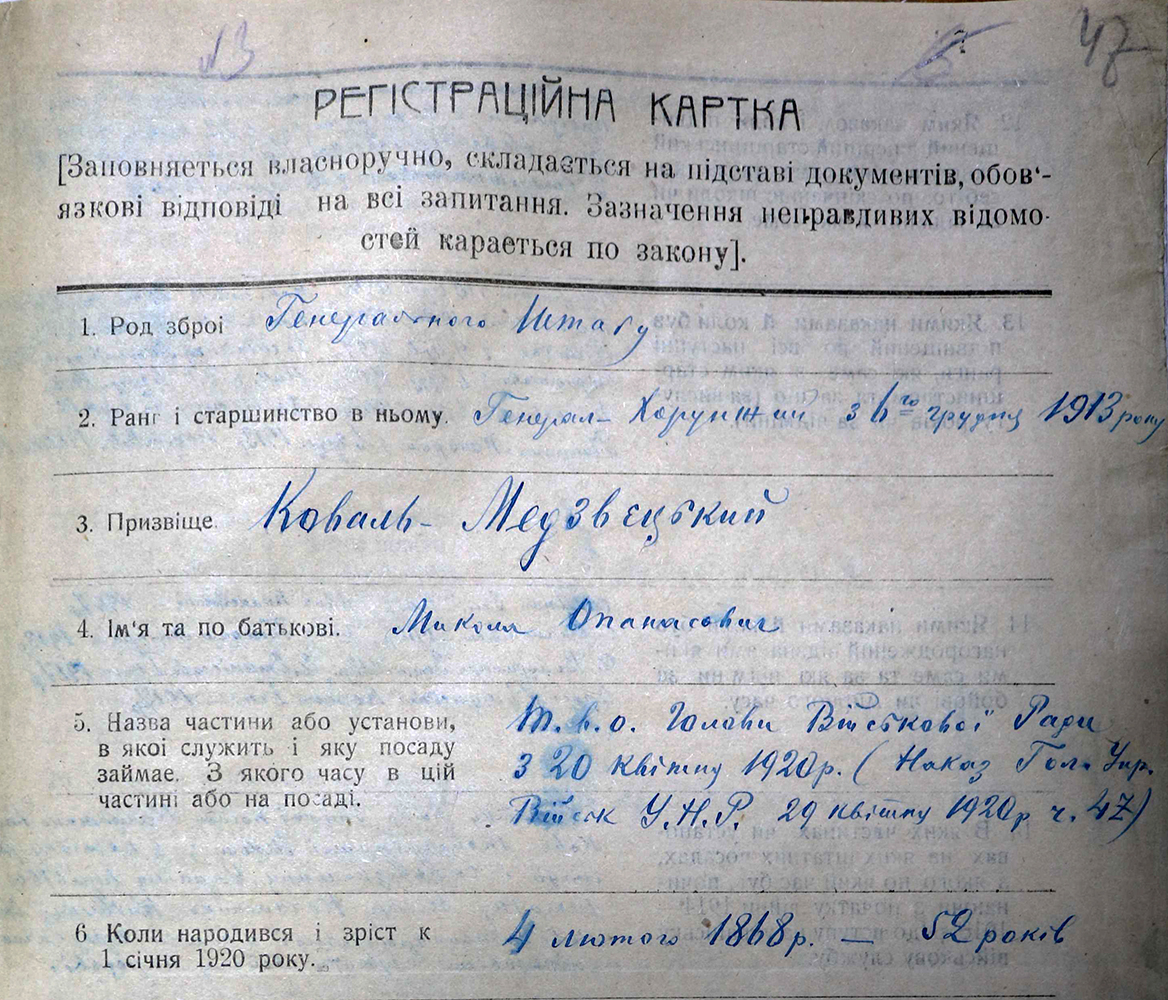 №3
47
РЕГІСТРАЦІЙНА КАРТКА
[Заповняеться власноручно, складаэться на підставі документів, обов'-
язкові відповіді на всі запитання. Зазначення неправдивих відомо-
стей караеться по закону].
1. Род зброі Генерального Штабу
2. Ранг і старшинство в ньому. Генерал-Хорунжий з 6го грудня 1913 року
3. Призвіще. Коваль-Медзвецький
4. Ім'я та по батькові. Микола Опанасович
5. Назва частини або установи, т.в.о. Голови Військової Ради
в якоі служить і яку посаду з 20 квітня 1920 р. (Наказ Гол. Упр.
займае. З якого часу в цій
частині або на посаді. Військ У.Н.Р. 29 квітня 1920 р ч. 47)
6 Коли народився і зріст к 4 лютого 1868 р. — 52 років
1 січня 1920 року.